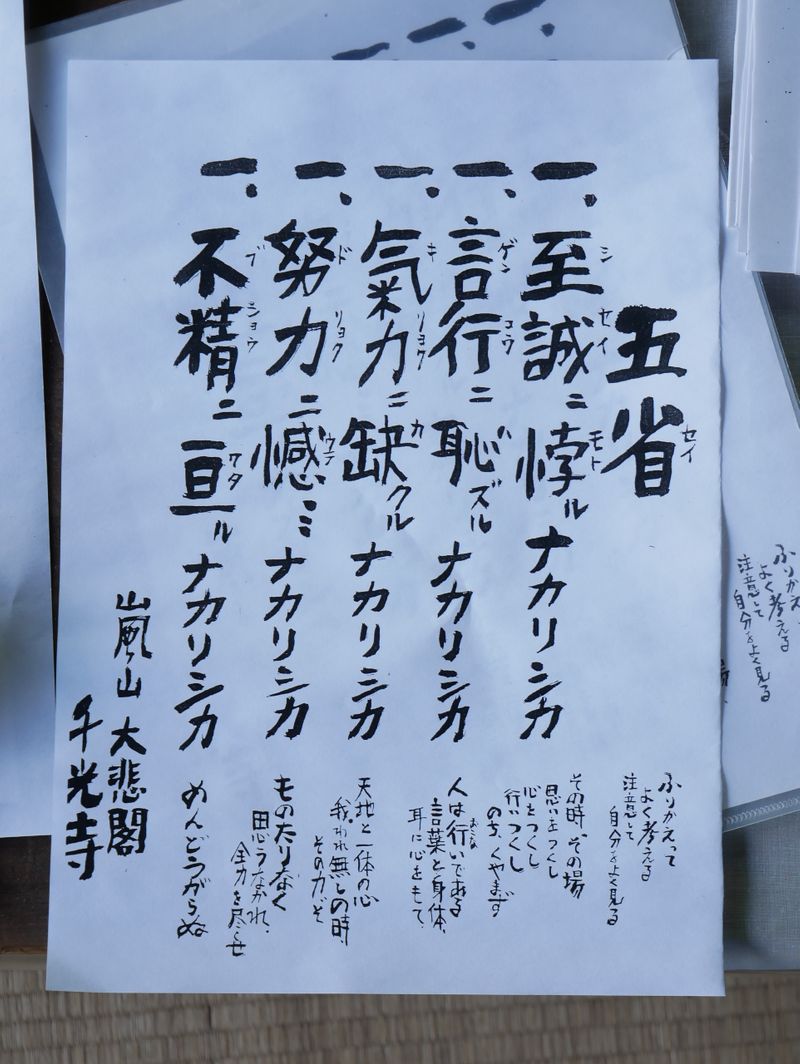 五省
一、至誠ニ悖ルナカリシカ
一、言行ニ恥ズルナカリシカ
一、氣力ニ缺クルナカリシカ
一、努力ニ憾ミナカリシカ
一、不精ニ亘ルナカリシカ
ふりかえって
よく考える
注意して
自分をよく見る
その時、その場
思いをつくし
心をつくし
行いつくし
のち、くやまず
人は行いである
言葉と身体、
耳に心をもて、
天地と一体の心
我われ無しの時、
その力ぞ
ものたりなく
思うなかれ、
全力を尽くせ
めんどうがらぬ
嵐山 大悲閣
千光寺
ふりかえっ
よく考える
注意して
自分をよく見る